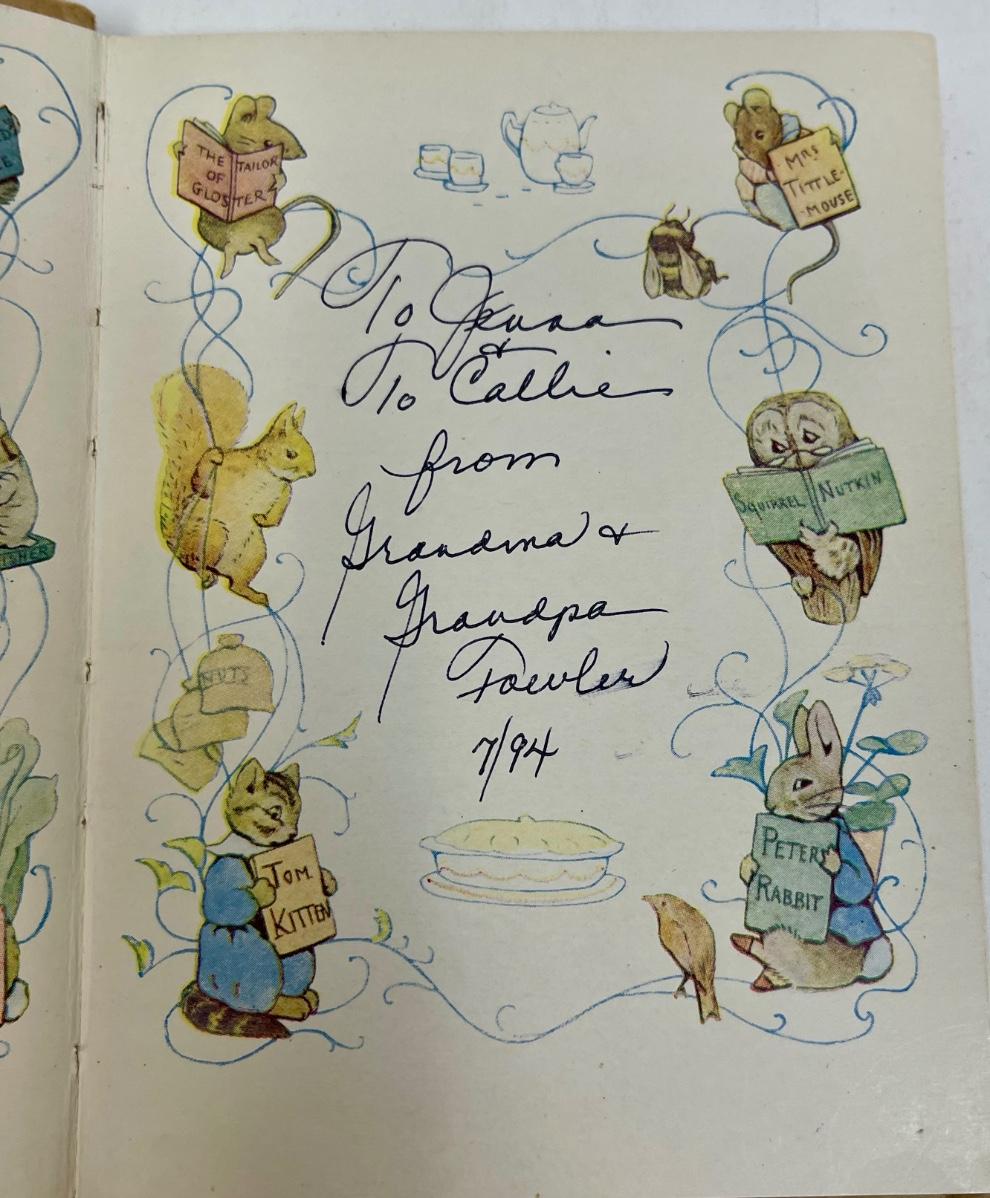 THE TAILOR
OF
GLOSTER
MRS
TITTLE-
-MOUSE
To Jenna
&
To Callie
from
Grandma &
Grandpa
Fowler
7/94
SQUIRREL NUTKIN
NUTS
TOM
KITTEN
PETER
RABBIT